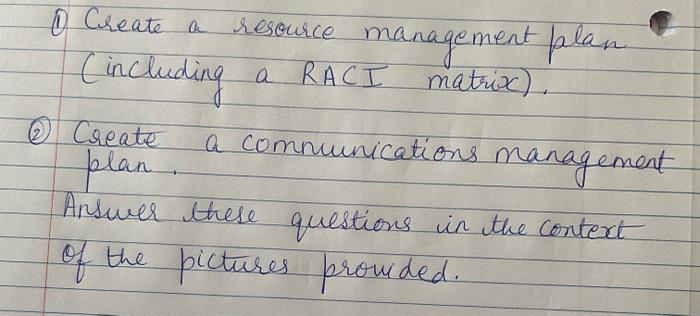 ① Create a resource management plan
(including a RACI matrix).
② Create a communications management
plan.
Answer these questions in the context
of the pictures provided.